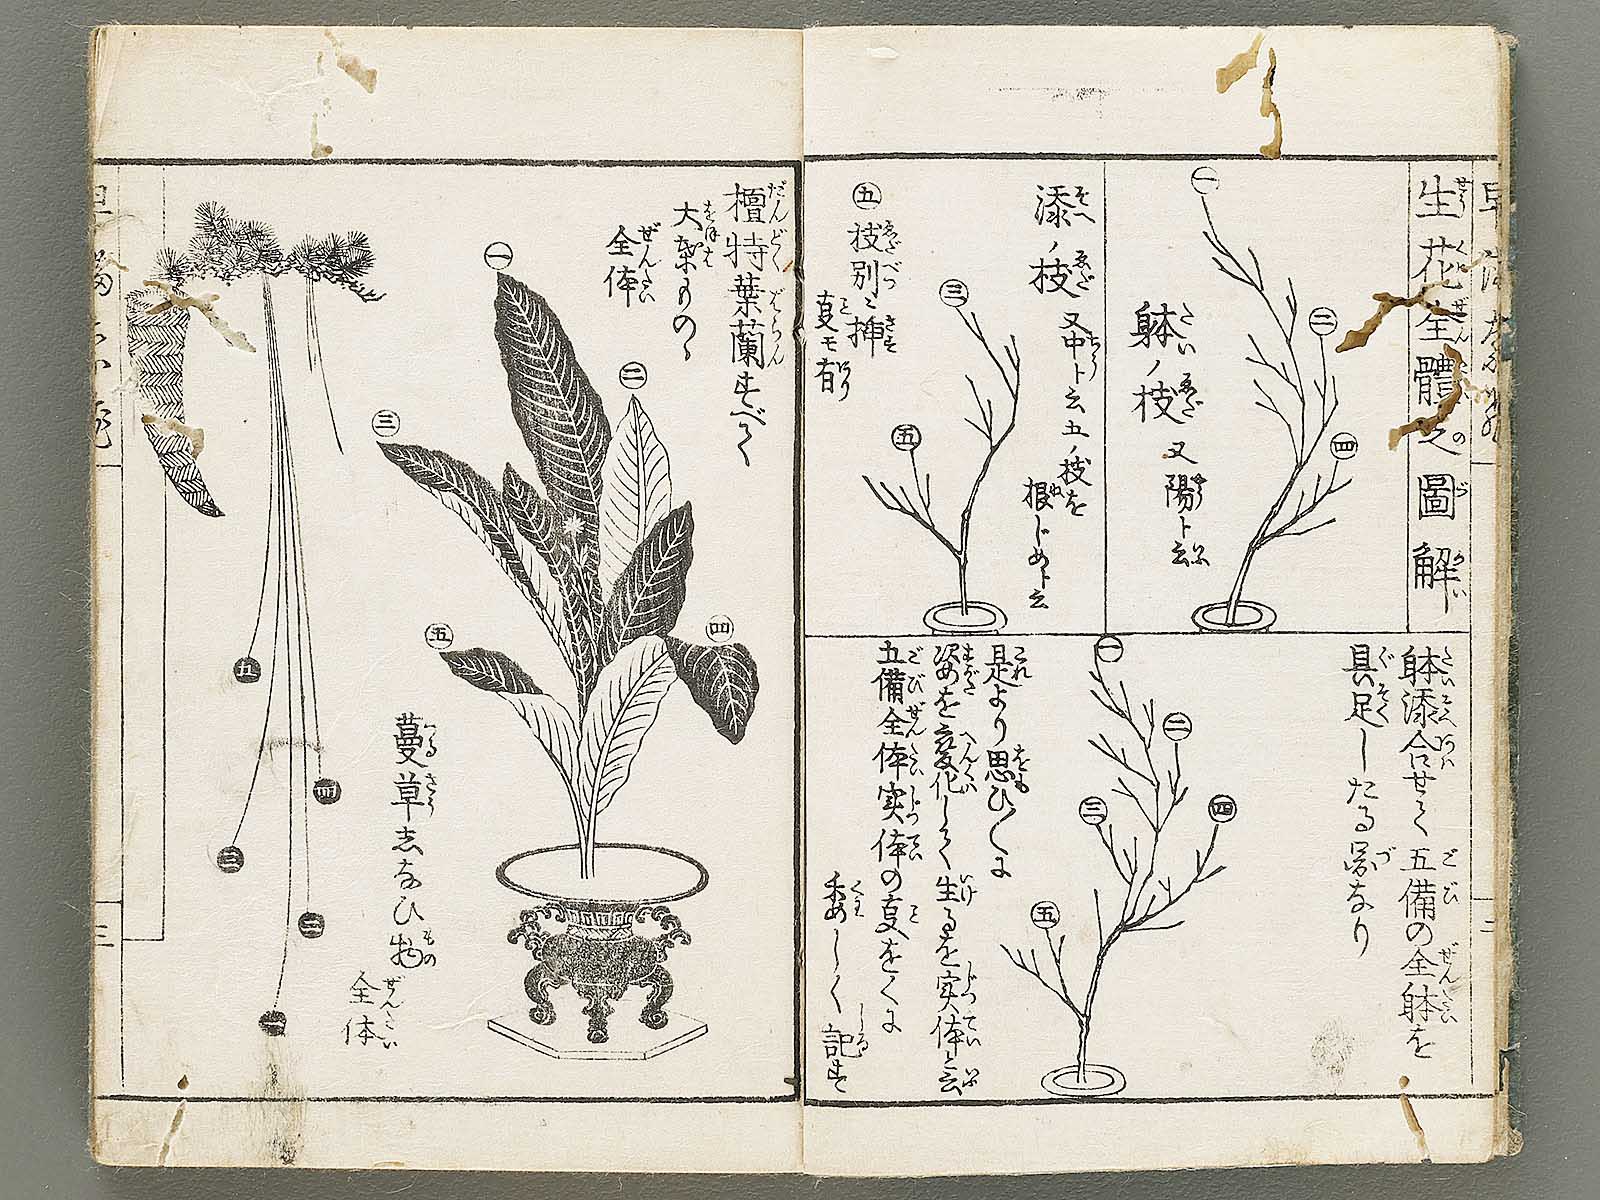 生花全體之圖解
一
二
四
躰ノ枝
又陽ト云
添ノ枝
又中ト云五ノ枝を
根じめト云
三
五
五 枝別ニ挿
事モ有
躰添合せて五備の全躰を
具足したる図なり
一
二
三
四
五
是より思ひ〱に
姿を変化して生るを実体と云
五備全体実体の事をくに
委しく記す
檀特葉蘭すべて
大葉もの丶
全体
一
二
三
四
五
蔓草しなひ物
全体
五
四
三
二
一
三